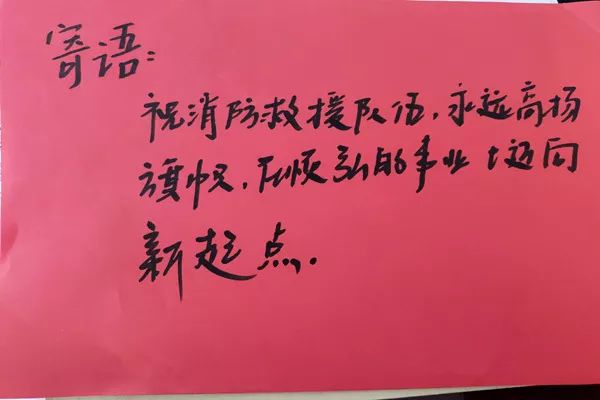 寄语：
祝消防救援队伍，永远高扬
旗帜，在恢弘的事业上迈向
新起点．